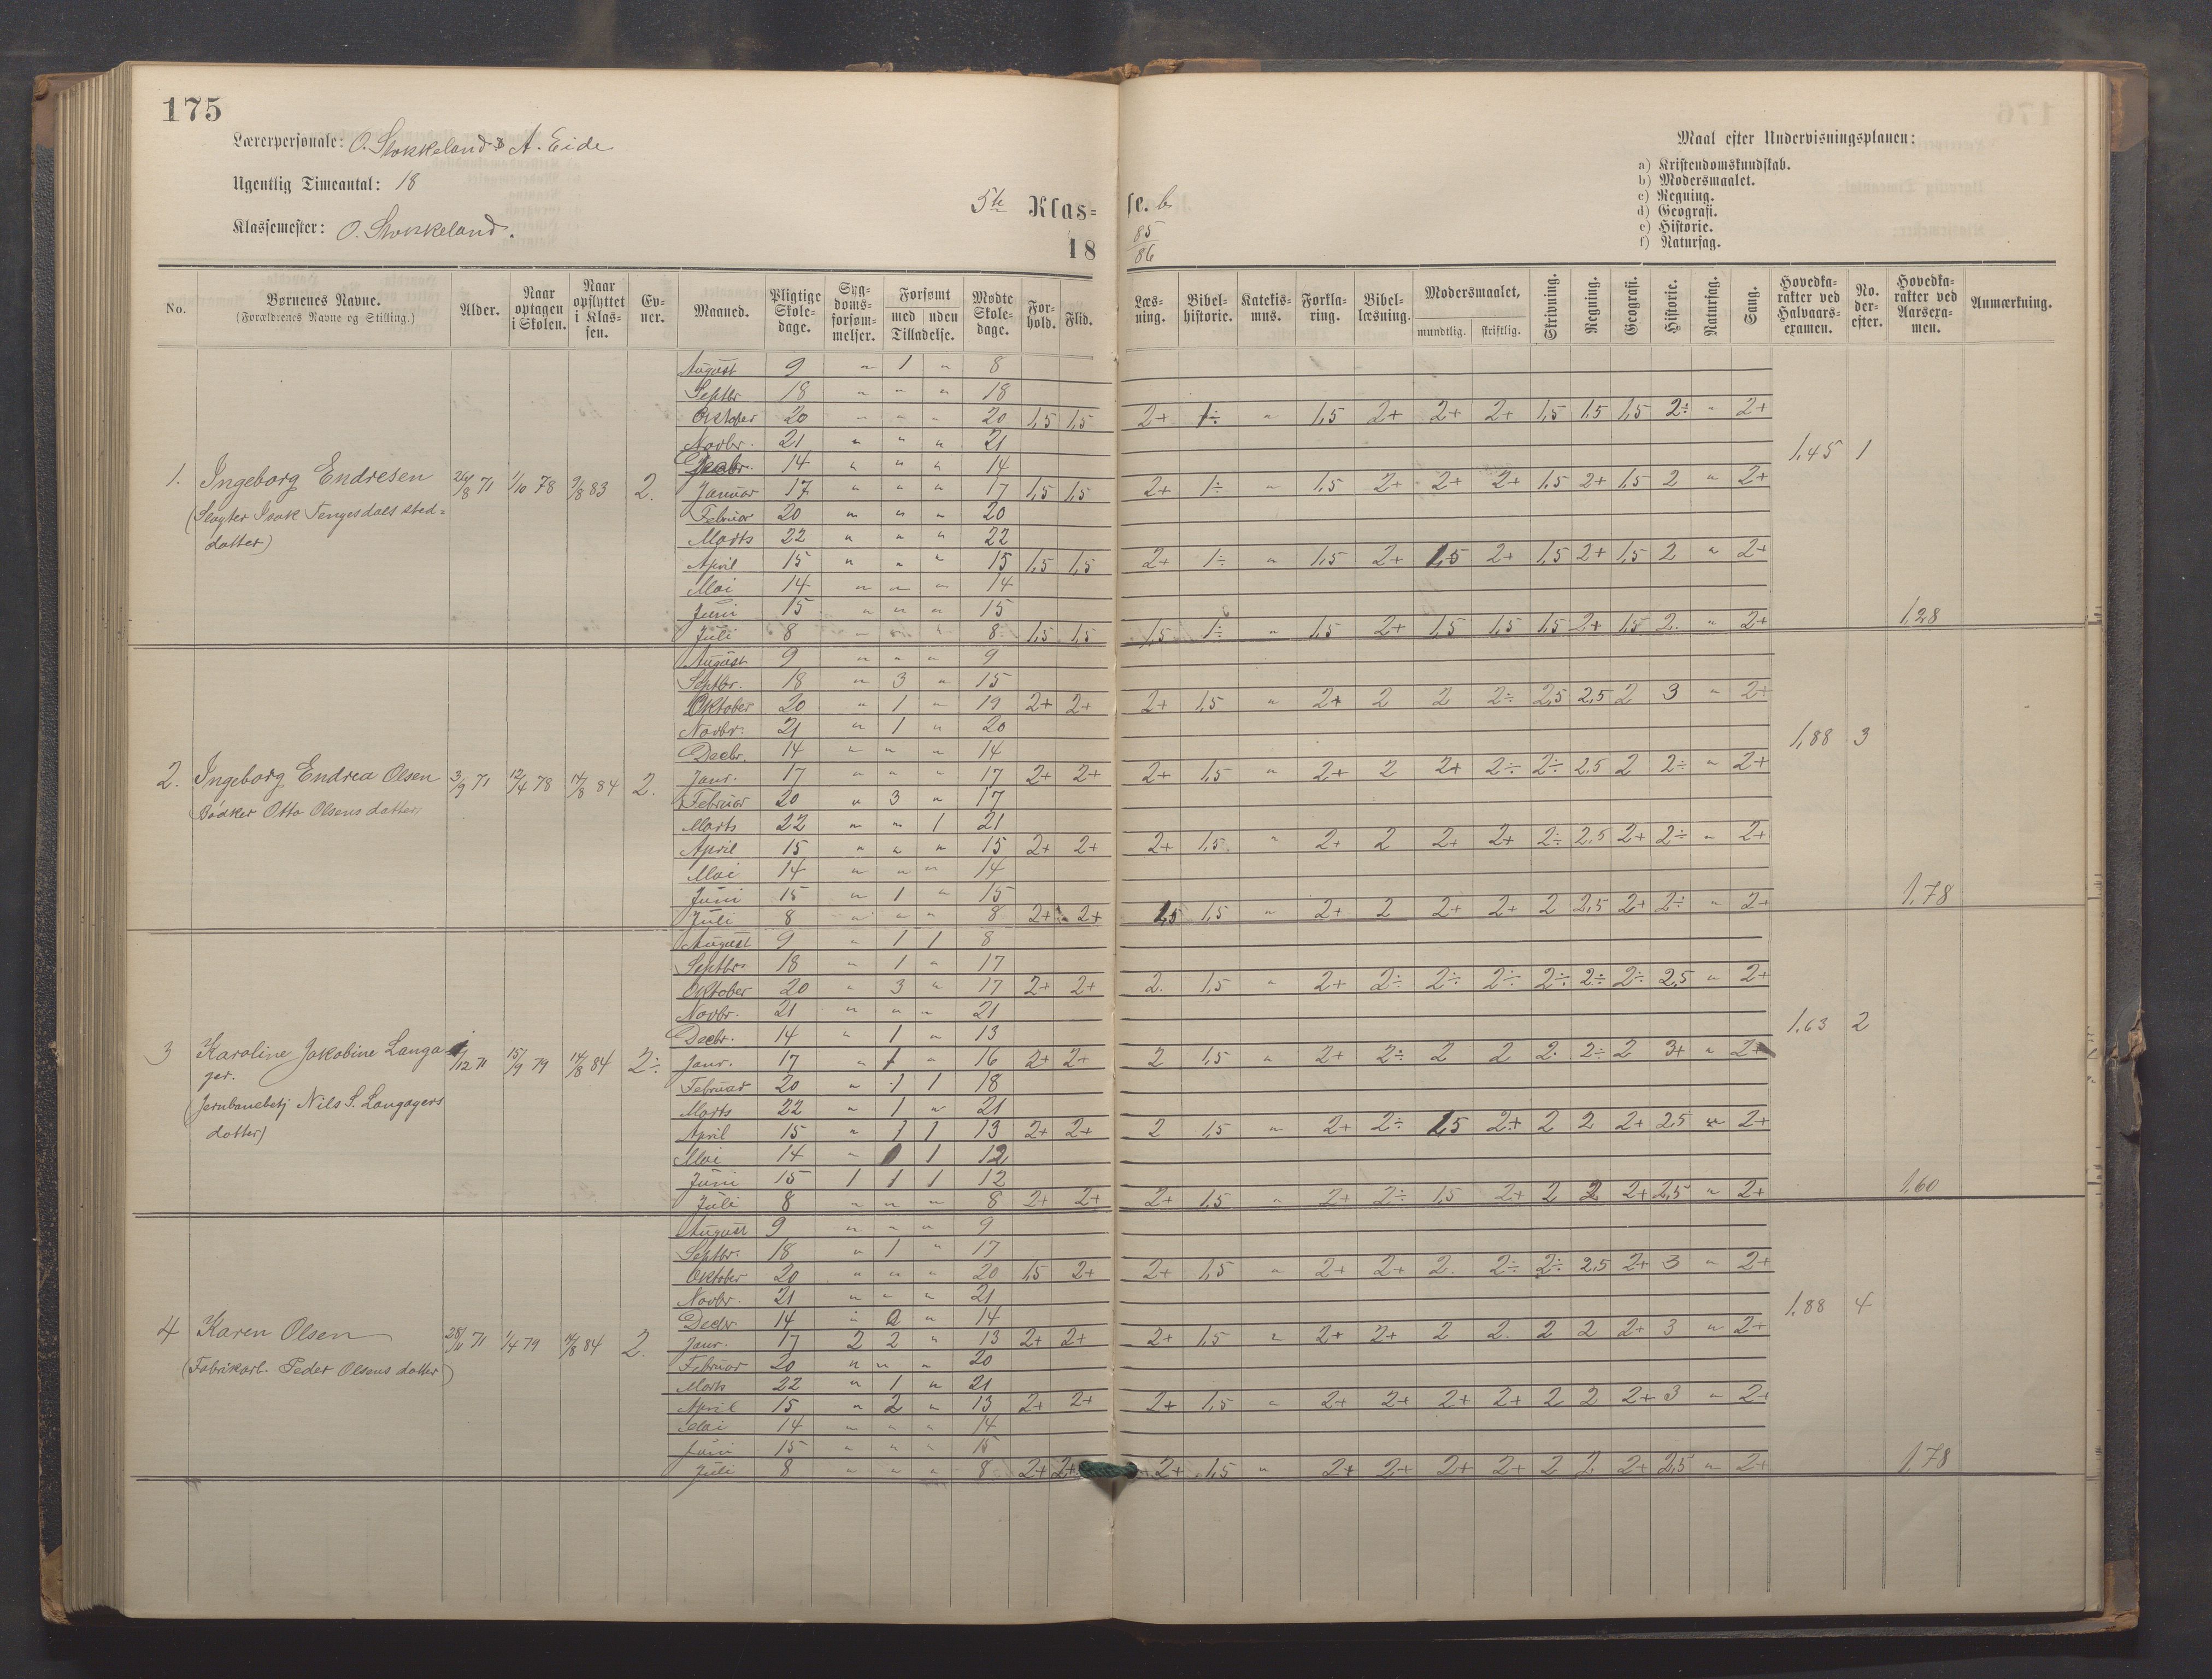 175
Lærerpersonale: O. Stokkeland & A. Eide
Ugentlig Timeantal: 18
Klassemester: O. Stokkeland.
5te Klas=se. b.
18 85/86
Maal efter Undervisningsplanen:
a) Kristendomskundskab.
b) Modersmaalet.
c) Regning.
d) Geografi.
e) Historie.
f) Naturfag.
No. Børnenes Navne. (Forældrenes Navne og Stilling.) Alder. Naar optagen i Skolen. Naar opflyttet i Klassen. Evner. Maaned. Pligtige Skoledage. Sygdomsforsømmelser. Forsømt med uden Tilladelse. Mødte Skoledage. Forhold. Flid. Læsning. Bibelhistorie. Katekismus. Forklaring. Bibellæsning. Modersmaalet, mundtlig. skriftlig. Skrivning. Regning. Geografi. Historie. Naturfag. Sang. Hovedkarakter ved Halvaarsexamen. No. derefter. Hovedkarakter ved Aarsexamen. Anmærkning.
August 9 " 1 " 8
Septbr 18 " " " 18
Oktober 20 " " " 20 1,5 1,5 2+ 1÷ " 1,5 2+ 2+ 2+ 1,5 1,5 1,5 2÷ " 2+
Novbr. 21 " " " 21
Decbr. 14 " " " 14 1,45 1
1. Ingeborg Endresen 24/8 71 1/10 78 9/8 83 2. Januar 17 " " " 17 1,5 1,5 2+ 1÷ " 1,5 2+ 2+ 2+ 1,5 2+ 1,5 2 " 2+
(Slagter Isak Tengesdals sted=
Februar 20 " " " 20
datter)
Marts 22 " " " 22
April 15 " " " 15 1,5 1,5 2+ 1÷ " 1,5 2+ 1,5 2+ 1,5 2+ 1,5 2 " 2+
Mai 14 " " " 14
Juni 15 " " " 15
Juli 8 " " " 8 1,5 1,5 1,5 1÷ " 1,5 2+ 1,5 1,5 1,5 2+ 1,5 2. " 2+ 1,28
August 9 " " " 9
Septbr. 18 " 3 " 15
Oktober 20 " 1 " 19 2+ 2+ 2+ 1,5 " 2+ 2 2 2÷ 2,5 2,5 2 3 " 2+
Novbr. 21 " 1 " 20
Decbr. 14 " " " 14 1,88 3
2. Ingeborg Endrea Olsen 3/9 71 12/4 78 14/8 84 2. Janr. 17 " " " 17 2+ 2+ 2+ 1,5 " 2+ 2 2+ 2÷ 2÷ 2,5 2 2÷ " 2+
Bødker Otto Olsens datter.
Februar 20 " 3 " 17
Marts 22 " " 1 21
April 15 " " " 15 2+ 2+ 2+ 1,5 " 2+ 2 2+ 2+ 2÷ 2,5 2+ 2÷ " 2+
Mai 14 " " " 14
Juni 15 " 1 " 15
Juli 8 " " " 8 2+ 2+ 1,5 1,5 " 2+ 2 2+ 2+ 2 2,5 2+ 2÷ " 2+ 1,78
August 9 " 1 1 8
Septbr 18 " 1 " 17
Oktober 20 " 3 " 17 2+ 2+ 2. 1,5 " 2+ 2÷ 2÷ 2÷ 2÷ 2÷ 2÷ 2,5 " 2+
Novbr. 21 " " " 21
Decbr. 14 " 1 " 13 1,63 2
3 Karoline Jakobine Langa- /12 71 15/9 79 14/8 84 2÷ Janr. 17 " 1 " 16 2+ 2+ 2 1,5 " 2+ 2÷ 2 2 2 2÷ 2 3+ " 2+
ger.
Februar 20 " 1 1 18
(Jernbanebetj Nils S. Langagers
Marts 22 " 1 " 21
datter)
April 15 " 1 1 13 2+ 2+ 2 1,5 " 2+ 2÷ 1,5 2+ 2 2 2+ 2,5 " 2+
Mai 14 " 1 12
Juni 15 1 1 1 12
Juli 8 " " " 8 2+ 2+ 2+ 1,5 " 2+ 2÷ 1,5 2+ 2 2 2+ 2,5 " 2+ 1,60
August 9 " " " 9
Septbr. 18 " 1 " 17
Oktober 20 " " " 20 1,5 2+ 2+ 1,5 " 2+ 2+ 2. 2÷ 2÷ 2,5 2+ 3 " 2+
Novbr. 21 " " " 21
Decbr 14 " " 14 1,88 4
4 Karen Olsen 28/11 71 1/4 79 14/8 84 2. Janr. 17 2 2 " 13 2+ 2+ 2+ 1,5 " 2+ 2+ 2 2. 2 2 2+ 3 " 2+
(Fabrikarb. Peder Olsens datter)
Februar 20 " " " 20
Marts 22 " 1 " 21
April 15 " 2 " 13 2+ 2+ 2+ 1,5 " 2+ 2+ 2+ 2+ 2 2 2+ 3 " 2+
Mai 14 " " " 14
Juni 15 " " " 15
Juli 8 " " " 8 2+ 2+ 2+ 1,5 " 2+ 2+ 2+ 2+ 2 2. 2+ 2,5 " 2+ 1,78